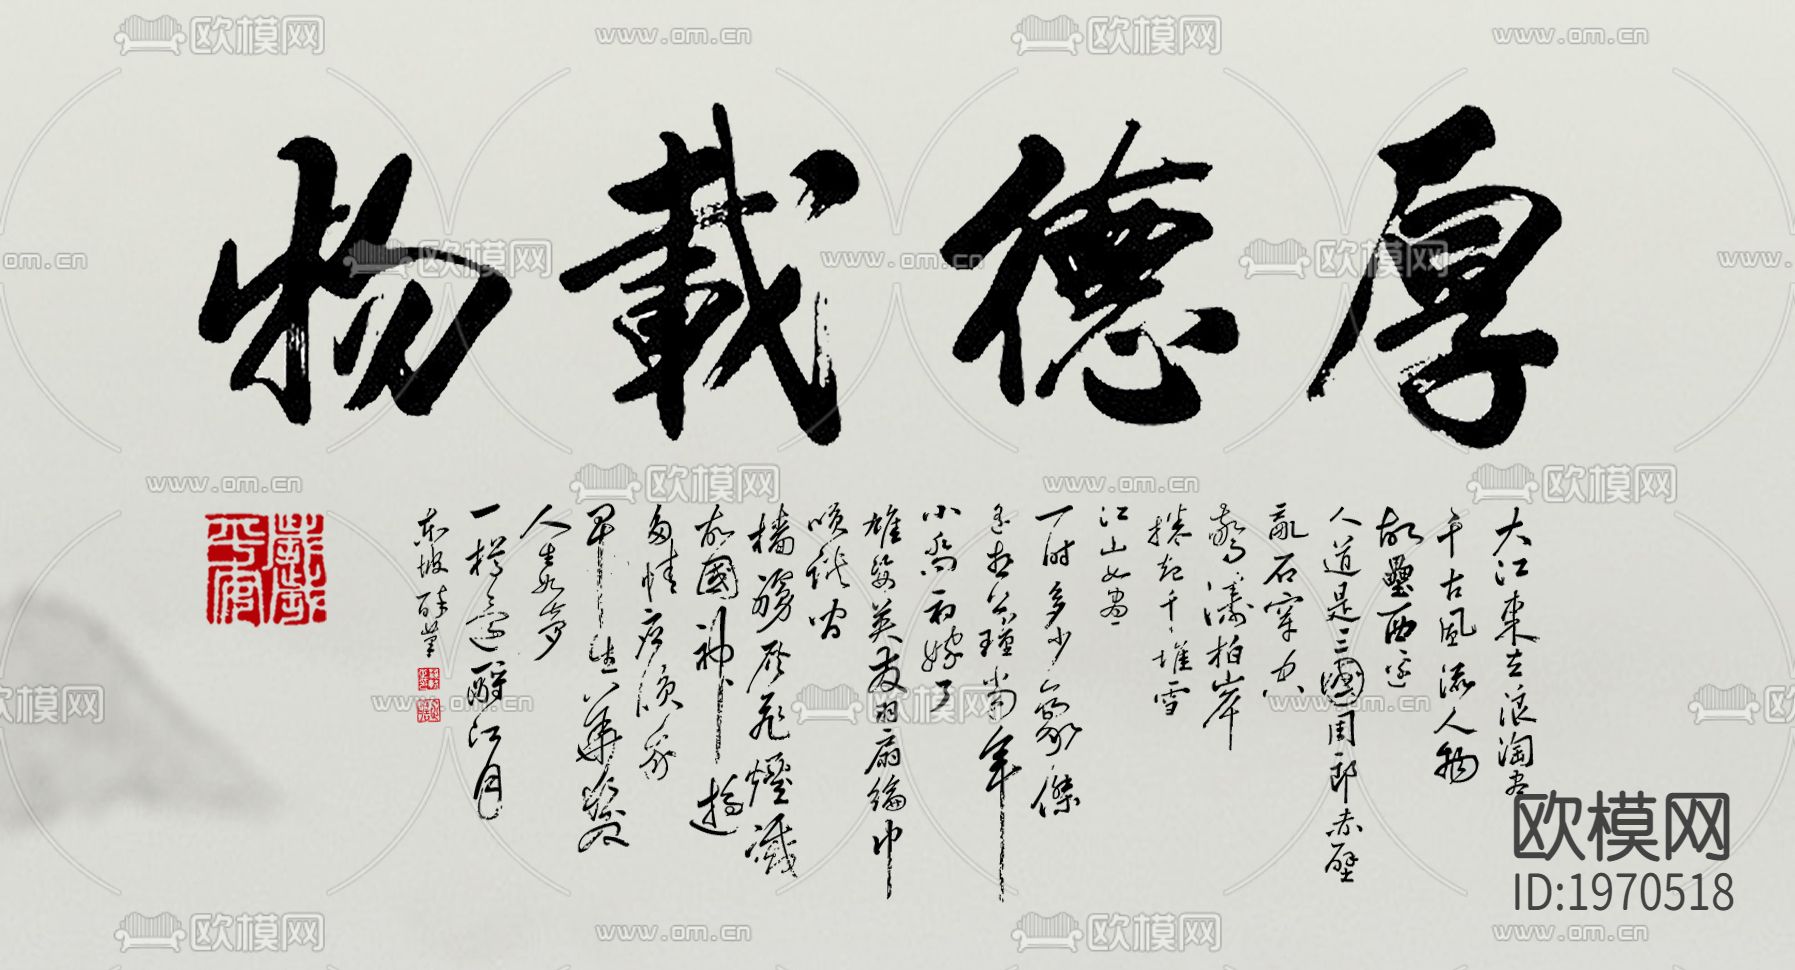 厚德載物
大江東去浪淘盡
千古風流人物
故壘西邊
人道是三國周郎赤壁
亂石穿空
驚濤拍岸
捲起千堆雪
江山如畫
一時多少豪傑
遙想公瑾當年
小喬初嫁了
雄姿英發羽扇綸巾
咲談間
檣艣灰飛煙滅
故國神遊
多情應咲我
早生華髮
人生如夢
一樽還酹江月
東坡醉筆
欧模网
ID:1970518
www.om.cn